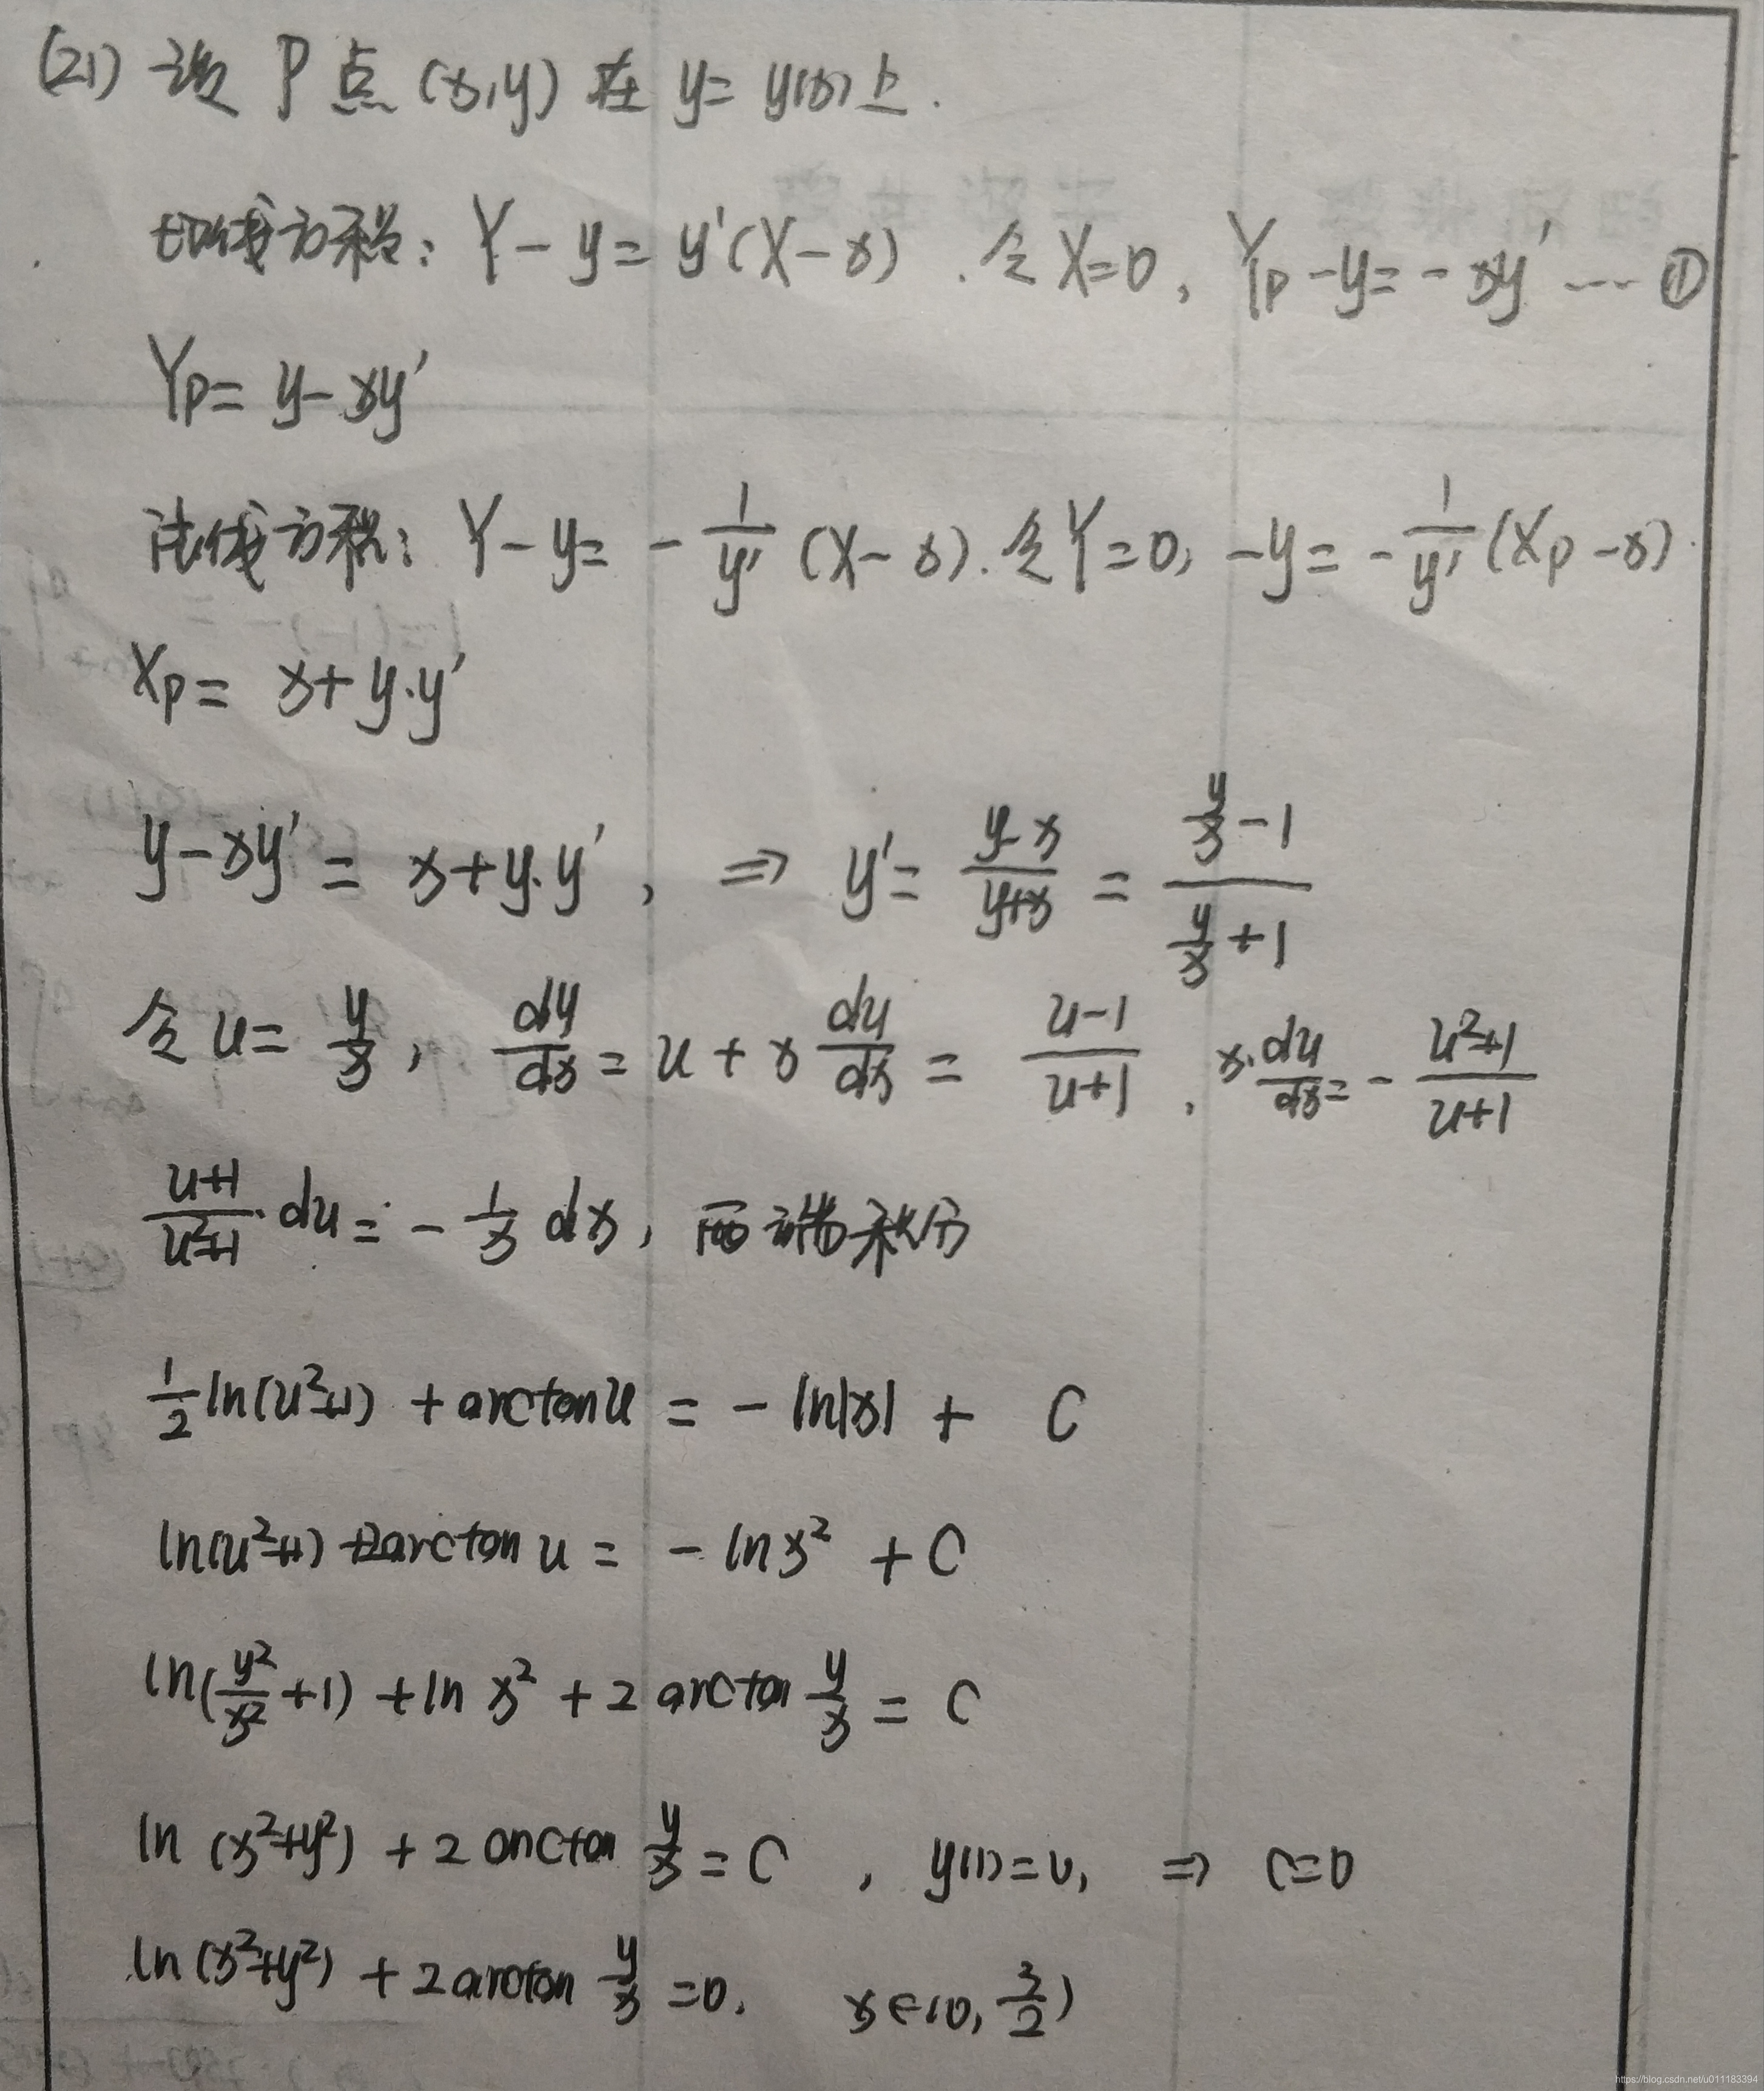 (21) 设 P 点 (x,y) 在 y= y(x)上.
切线方程: Y-y= y'(X-x) . 令X=0, Yp-y=-xy' ---- ①
Yp= y-xy'
法线方程: Y-y= -1/y' (X-x). 令Y=0, -y= -1/y' (Xp-x).
Xp= x+y·y'
y-xy' = x+y·y' , ⇒ y'= (y-x)/(y+x) = (y/x -1)/(y/x +1)
令 u= y/x , dy/dx = u + x du/dx = (u-1)/(u+1) , x·du/dx = -(u²+1)/(u+1)
(u+1)/(u²+1)·du = -1/x dx, 两端积分
1/2 ln(u²+1) + arctan u = -ln|x| + C
ln(u²+1) +2arctan u = -ln x² + C
ln(y²/x² +1) +ln x² + 2 arctan y/x = C
ln (x²+y²) + 2 arctan y/x = C , y(1)=0, ⇒ C=0
ln (x²+y²) + 2 arctan y/x =0. x∈(0, 3/2)
https://blog.csdn.net/u011183394